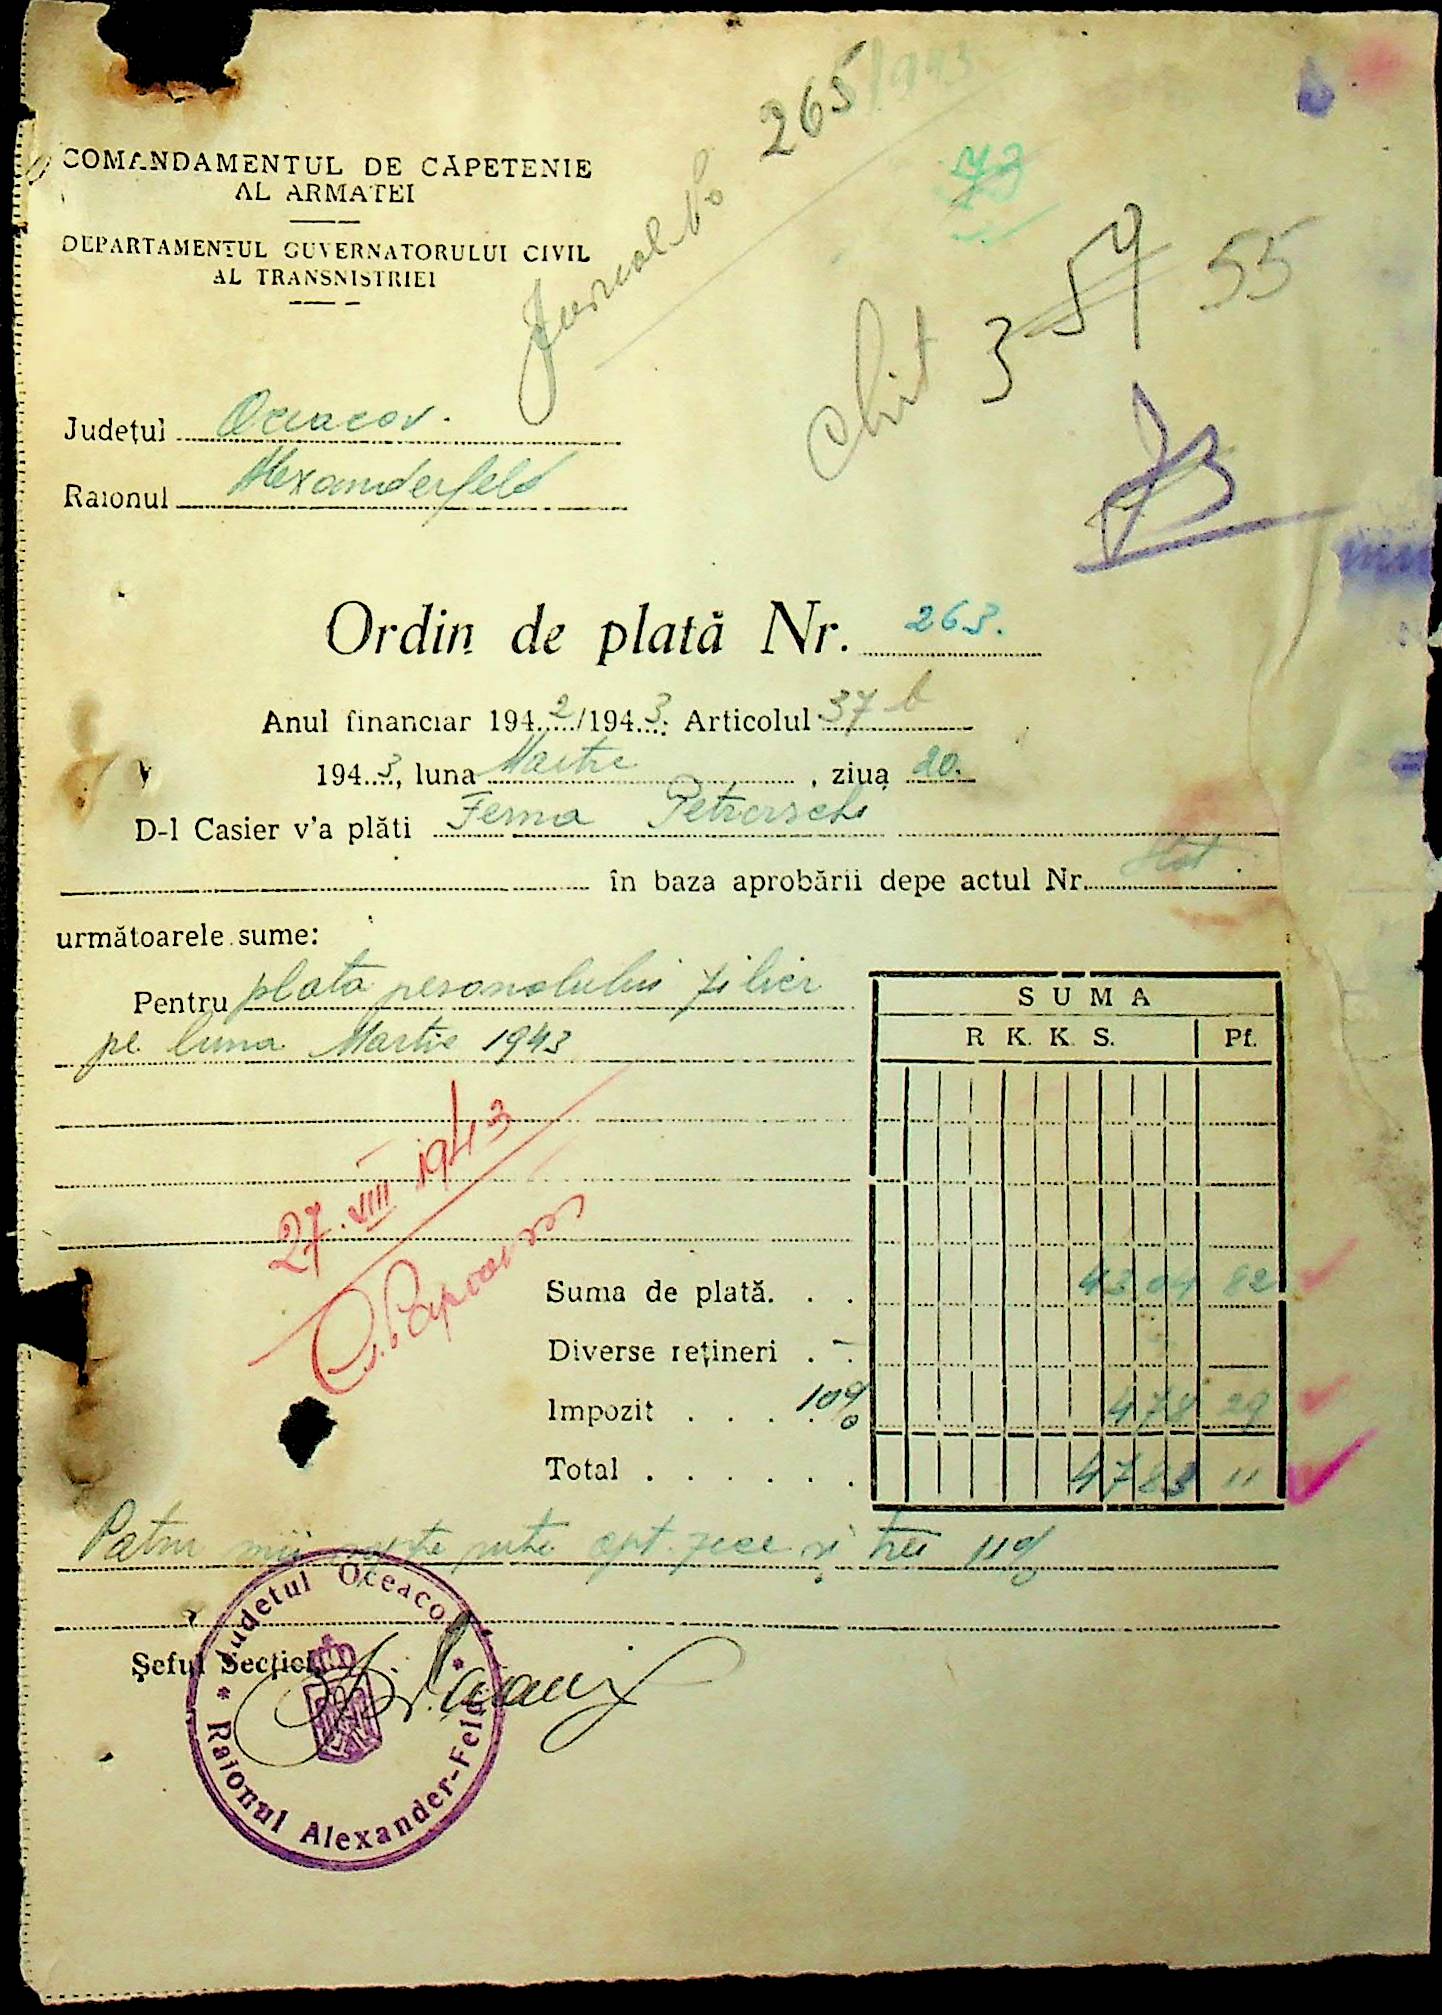 Jurnal No 265/943
73
COMANDAMENTUL DE CĂPETENIE
AL ARMATEI
DEPARTAMENTUL GUVERNATORULUI CIVIL
AL TRANSNISTRIEI
Chit 3 59 55
Județul Oceacov.
Raionul Alexanderfeld
Ordin de plată Nr. 263.
Anul financiar 1942/1943. Articolul 37 b
1943, luna Martie, ziua 20.
D-l Casier v'a plăti Ferma
în baza aprobării depe actul Nr. Stat.
următoarele sume:
Pentru plata personalului zilier
pe luna Martie 1943
SUMA
R. K. K. S. Pf.
27.VIII 1943
Suma de plată. . . 4304 82
Diverse rețineri . - .
Impozit . . . . 10% 478 29
Total . . . . . . . 4783 11
Patru mii șapte sute opt zece și trei 11
Șeful Secției
Județul Oceacov
* Raionul Alexander-Feld *